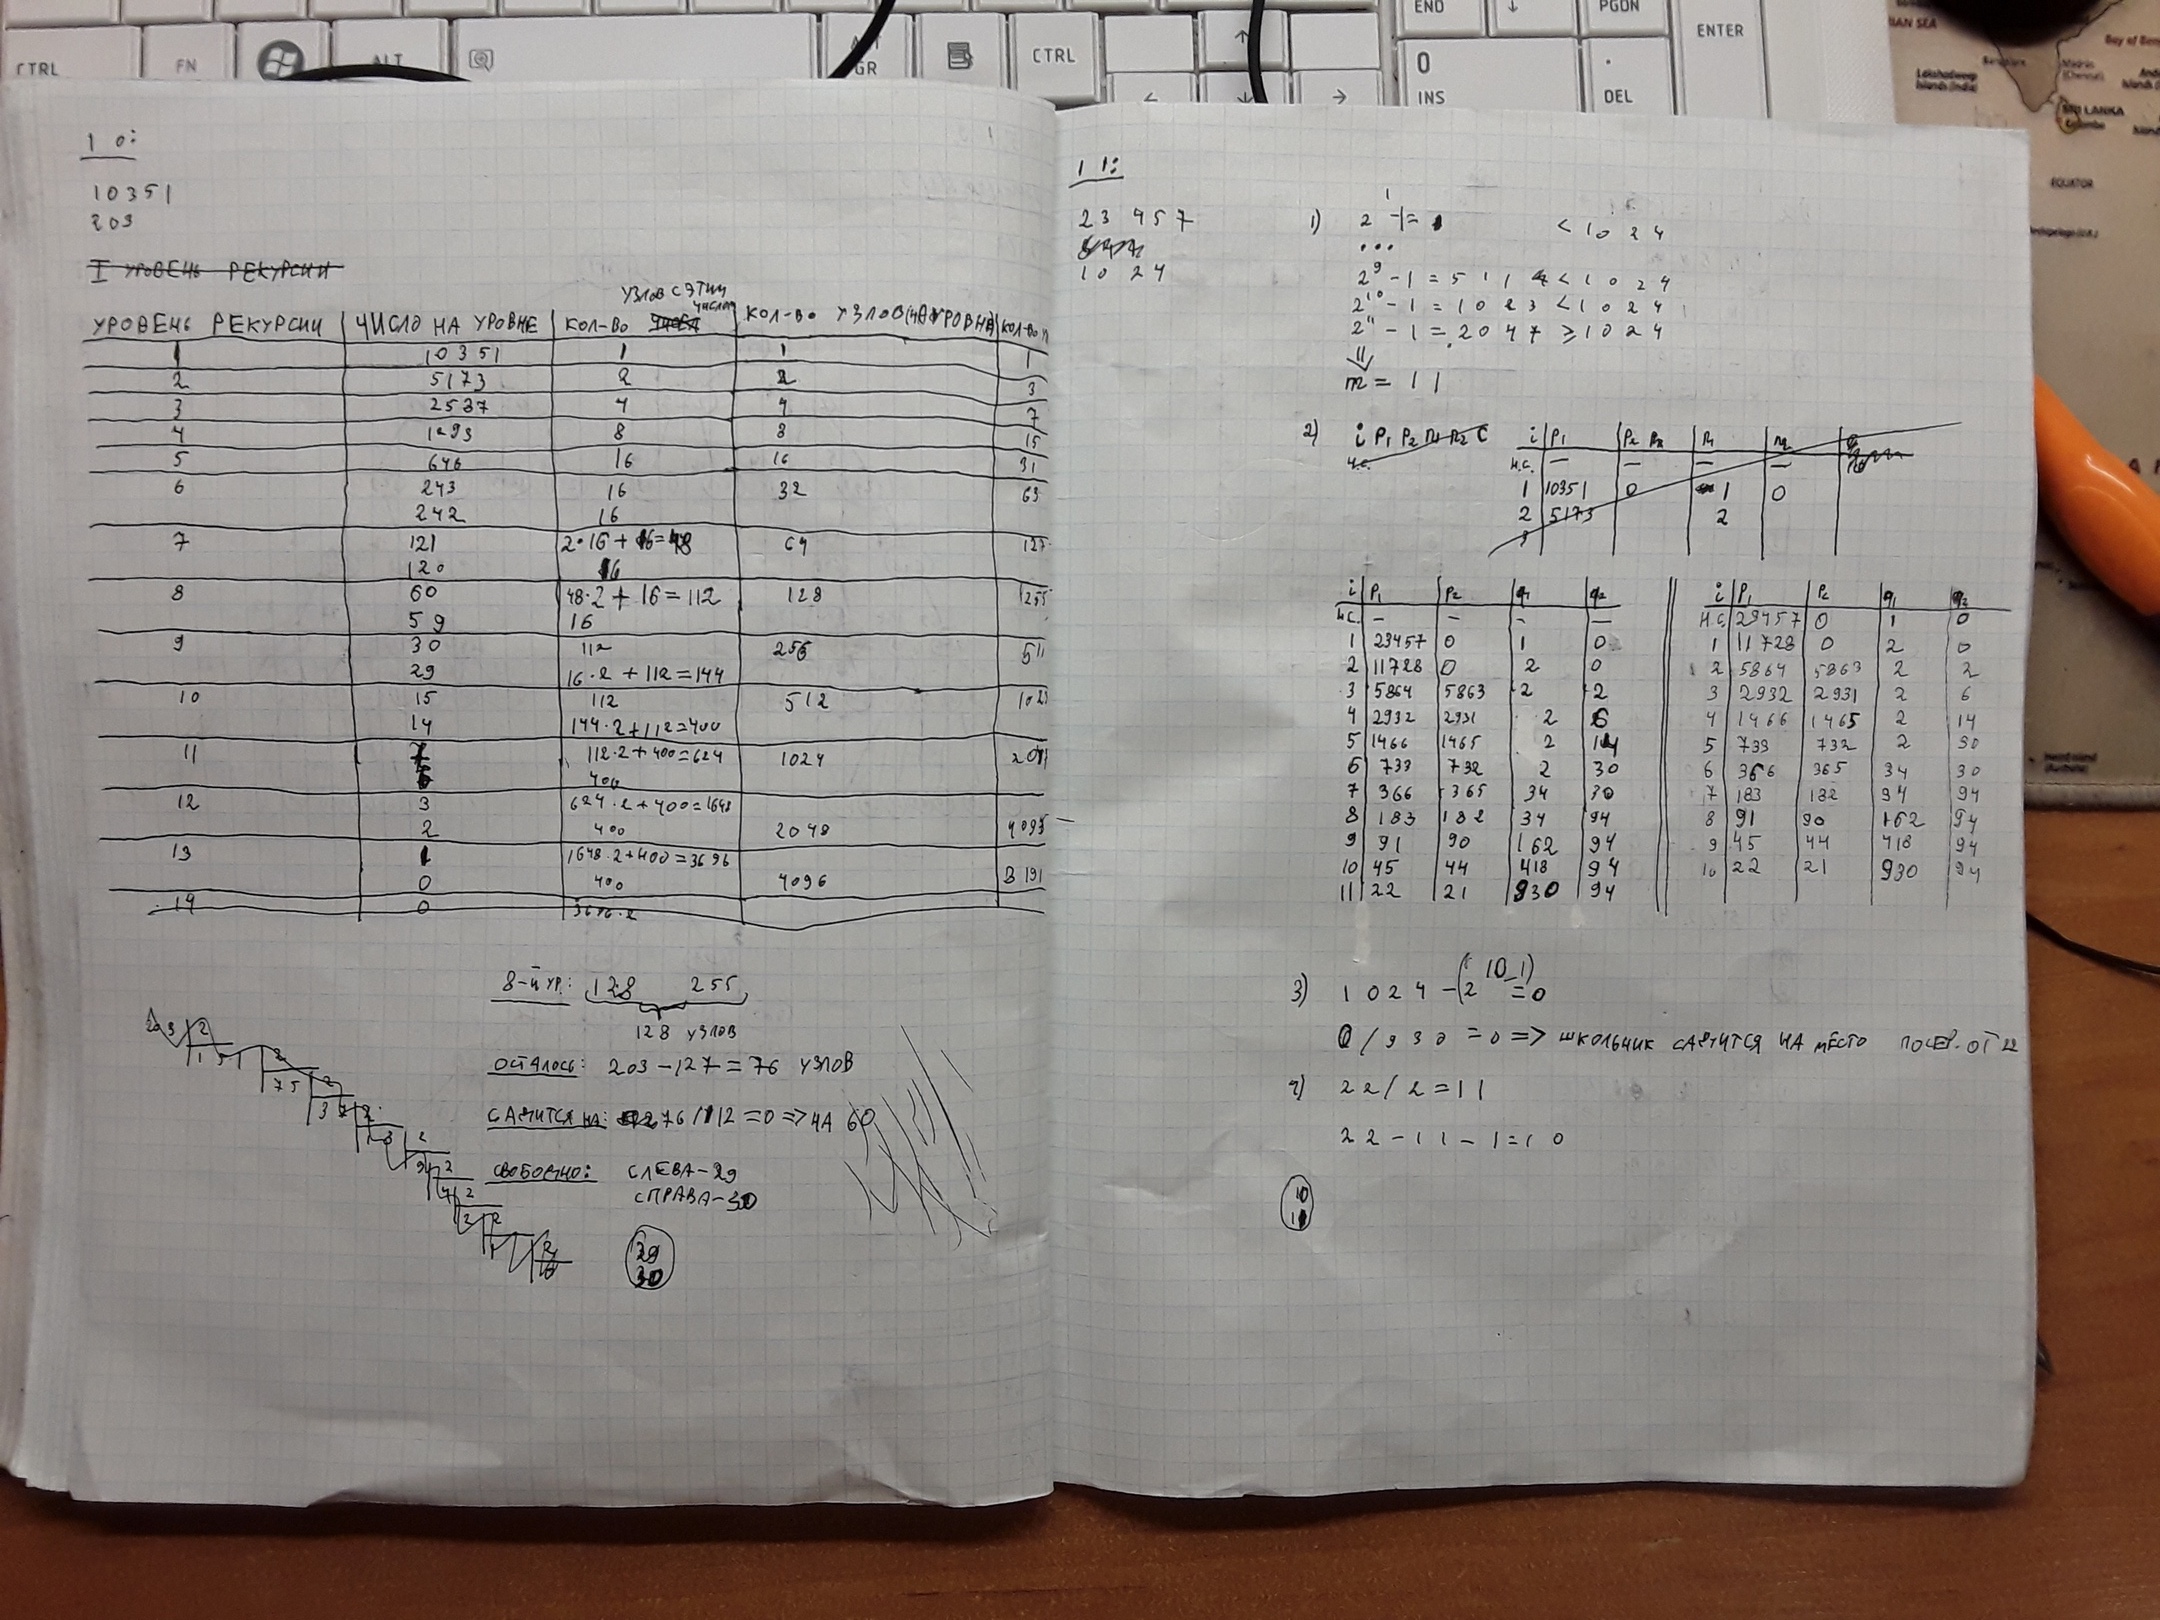 END
↓
PGDN
ENTER
CTRL
FN
ALT
ALT GR
CTRL
↑
←
↓
→
0
INS
.
DEL
Bay of
Lakshadweep
Islands (India)
SRI LANKA
EQUATOR
1 0:
10351
203
I УРОВЕНЬ РЕКУРСИИ
УРОВЕНЬ РЕКУРСИИ | ЧИСЛО НА УРОВНЕ | КОЛ-ВО УЗЛОВ С ЭТИМ ЧИСЛОМ | КОЛ-ВО УЗЛОВ (НА УРОВНЕ) | КОЛ-ВО
1 | 10351 | 1 | 1 | 1
2 | 5173 | 2 | 2 | 3
3 | 2537 | 4 | 4 | 7
4 | 1293 | 8 | 8 | 15
5 | 646 | 16 | 16 | 31
6 | 243 | 16 | 32 | 63
242 | 16
7 | 121 | 2·16 + 16 = 48 | 64 | 127
120 | 16
8 | 60 | 48·2 + 16 = 112 | 128 | 255
59 | 16
9 | 30 | 112 | 256 | 511
29 | 16·2 + 112 = 144
10 | 15 | 112 | 512 | 102
14 | 144·2+112=400
11 | 7 | 112·2+400=624 | 1024 | 204
6 | 400
12 | 3 | 624·2+400=1648
2 | 400 | 2048 | 4095
13 | 1 | 1648·2+400=3696
0 | 400 | 4096 | 8191
14 | 0 | 3696·2
8-й УР: 128 255
128 УЗЛОВ
ОСТАЛОСЬ: 203-127=76 УЗЛОВ
САДИТСЯ НА: 76/112=0=>НА 60
СВОБОДНО: СЛЕВА-29
СПРАВА-30
29
30
203 | 2
1 1:
23 457
10 24
1) 2¹-1= <1024
...
2⁹-1=511<1024
2¹⁰-1=1023<1024
2¹¹-1=2047≥1024
m=11
2) i P₁ P₂ n₁ n₂ C
i | P₁ | P₂ | n₁ | n₂
н.с. | — | — | — | —
1 | 10351 | 0 | 1 | 0
2 | 5173 | 2
3
i | P₁ | P₂ | q₁ | q₂
н.с. | — | — | — | —
1 | 23457 | 0 | 1 | 0
2 | 11728 | 0 | 2 | 0
3 | 5864 | 5863 | 2 | 2
4 | 2932 | 2931 | 2 | 6
5 | 1466 | 1465 | 2 | 14
6 | 733 | 732 | 2 | 30
7 | 366 | 365 | 34 | 30
8 | 183 | 182 | 34 | 94
9 | 91 | 90 | 162 | 94
10 | 45 | 44 | 418 | 94
11 | 22 | 21 | 930 | 94
i | P₁ | P₂ | q₁ | q₂
н.с. | 23457 | 0 | 1 | 0
1 | 11728 | 0 | 2 | 0
2 | 5864 | 5863 | 2 | 2
3 | 2932 | 2931 | 2 | 6
4 | 1466 | 1465 | 2 | 14
5 | 733 | 732 | 2 | 30
6 | 366 | 365 | 34 | 30
7 | 183 | 182 | 34 | 94
8 | 91 | 90 | 162 | 94
9 | 45 | 44 | 418 | 94
10 | 22 | 21 | 930 | 94
3) 1024-(2¹⁰-1)=0
0/930=0=> ШКОЛЬНИК САДИТСЯ НА МЕСТО ПОСЕР. ОТ 22
4) 22/2=11
22-11-1=10
10
11